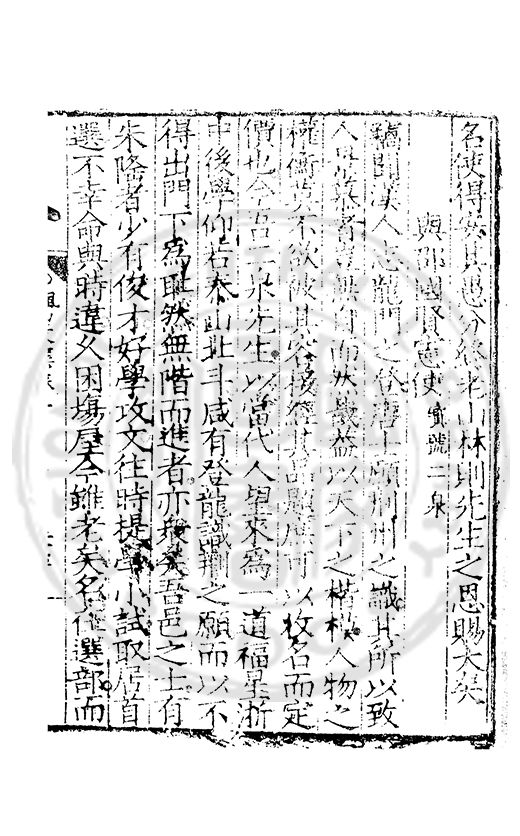 名使得安其愚分終老山林則先生之恩賜大矣
與邵國賢憲使寳號二泉
竊聞漢人志龍門之登唐士願荆州之識其所以致
人異慕者豈無自而然哉蓋以天下之楷模人物之
權衡莫不欲被其容接經其品題庶可以收名而定
價也今吾二泉先生以當代人望來爲一道福星浙
中後學仰若泰山北斗咸有登龍識荆之願而以不
得出門下爲耻然無階而進者亦衆矣吾邑之士有
朱路者少有俊才好學攻文往時提學小試取居首
選不幸命與時違久困場屋今雖老矣名僅選部而